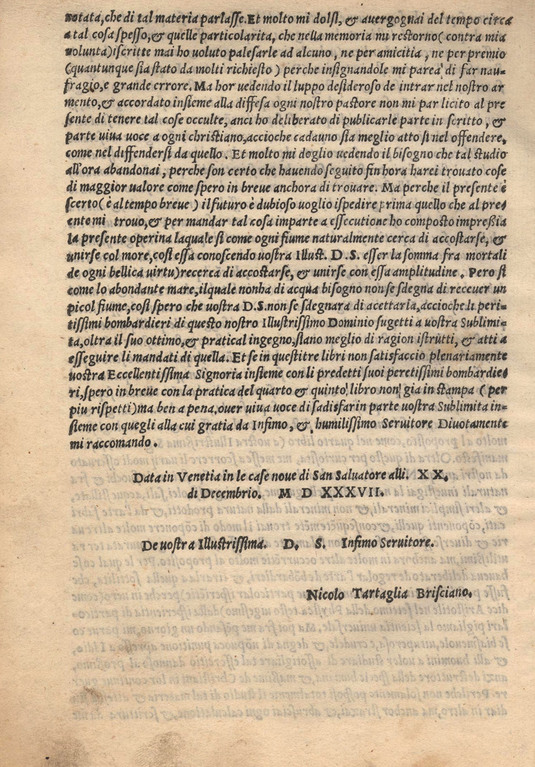 notata, che di tal materia parlasse. Et molto mi dolsi, & auergognai del tempo circa
a tal cosa speso, & quelle particolarita, che nella memoria mi restorno (contra mia
uolunta) iscritte mai ho uoluto palesarle ad alcuno, ne per amicitia, ne per premio
(quantunque sia stato da molti richiesto) perche insignandole mi parea di far nau-
fragio, e grande errore. Ma hor uedendo il luppo desideroso de intrar nel nostro ar
mento, & accordato insieme alla diffesa ogni nostro pastore non mi par licito al pre
sente di tenere tal cose occulte, anci ho deliberato di publicarle parte in scritto, &
parte uiua uoce a ogni christiano, accioche cadauno sia meglio atto si nel offendere,
come nel diffendersi da quello. Et molto mi doglio uedendo il bisogno che tal studio
all'ora abandonai, perche son certo che hauendo seguito fin hora harei trouato cose
di maggior ualore come spero in breue anchora di trouare. Ma perche il presente è
scerto (è al tempo breue) il futuro è dubioso uoglio ispedire prima quello che al pres
ente mi trouo, & per mandar tal cosa imparte a essecutione ho composto impressia
la presente operina laquale si come ogni fiume naturalmente cerca di accostarse, &
unirse col more, cosi essa conoscendo uostra Illust. D. S. esser la somma fra mortali
de ogni bellica uirtu) recerca di accostarse, & unirse con essa amplitudine. Pero si
come lo abondante mare, ilquale nonha di acqua bisogno non se sdegna di receuer un
picol fiume, cosi spero che uostra D.S. non se sdegnara di acettarla, accioche li peri-
tissimi bombardieri di questo nostro Illustrissimo Dominio sugetti a uostra Sublimi-
ta, oltra il suo ottimo, & pratical ingegno, siano meglio di ragion istrutti, & atti a
esseguire li mandati di quella. Et se in questi tre libri non satisfaccio plenariamente
uostra Eccellentissima Signoria insieme con li predetti suoi peretissimi bombardie
ri, spero in breue con la pratica del quarto & quinto libro non gia in stampa (per
piu rispetti) ma ben a pena, ouer uiua uoce di sadisfar in parte uostra Sublimita in-
sieme con quegli alla cui gratia da Infimo, & humilissimo Seruitore Diuotamente
mi raccomando.
Data in Venetia in le case noue di San Saluatore alli. XX.
di Decembrio. M D XXXVII.
De uostra Illustrissima. D. S. Infimo Seruitore.
Nicolo Tartaglia Brisciano.